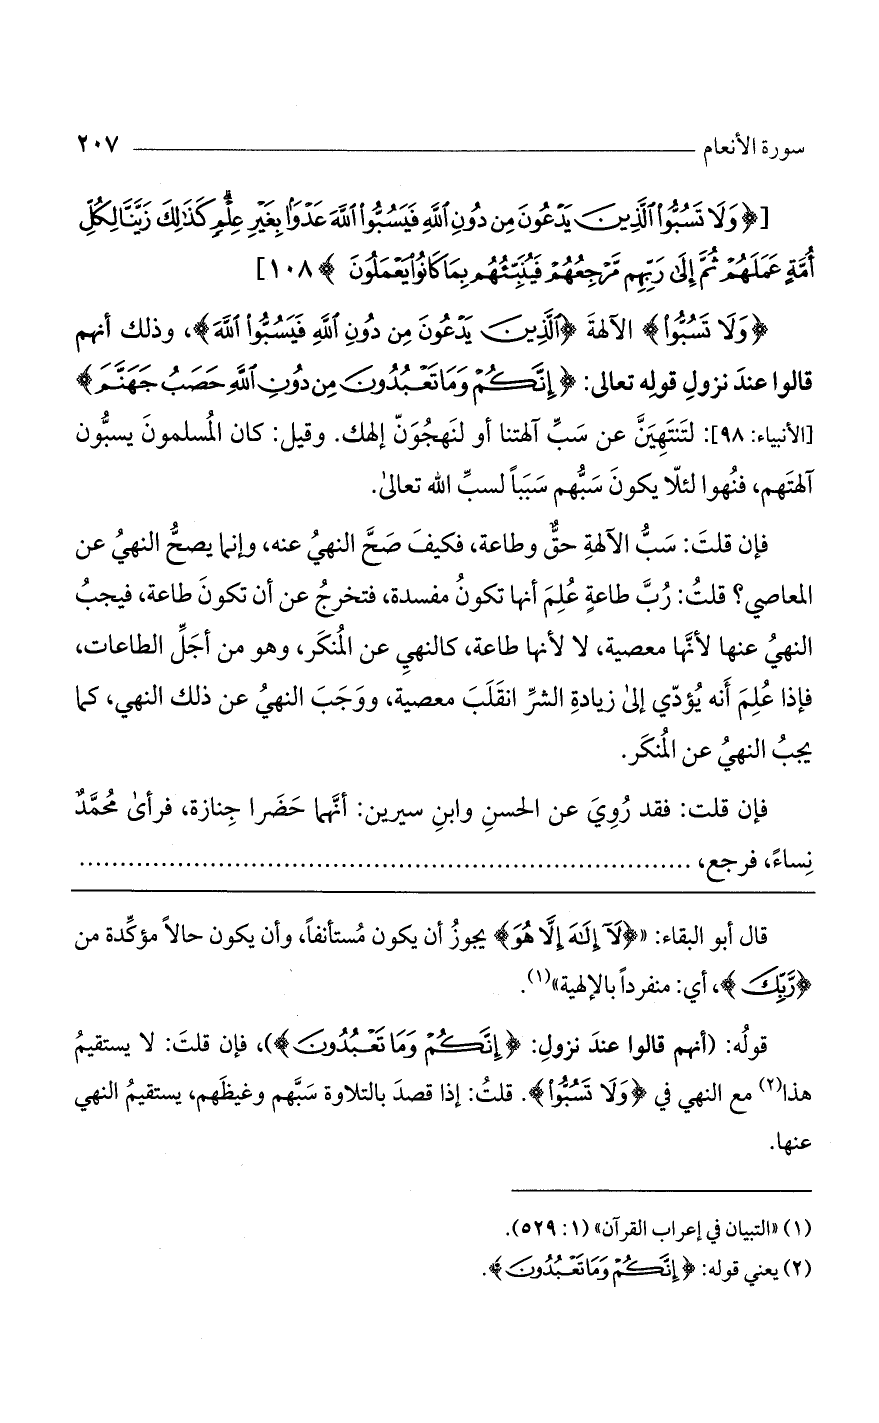 سورة الأنعام ٢٠٧
[﴿وَلَا تَسُبُّوا۟ ٱلَّذِينَ يَدْعُونَ مِن دُونِ ٱللَّهِ فَيَسُبُّوا۟ ٱللَّهَ عَدْوًۢا بِغَيْرِ عِلْمٍ ۗ كَذَٰلِكَ زَيَّنَّا لِكُلِّ
أُمَّةٍ عَمَلَهُمْ ثُمَّ إِلَىٰ رَبِّهِم مَّرْجِعُهُمْ فَيُنَبِّئُهُم بِمَا كَانُوا۟ يَعْمَلُونَ﴾ ١٠٨]
﴿وَلَا تَسُبُّوا۟﴾ الآلهةَ ﴿ٱلَّذِينَ يَدْعُونَ مِن دُونِ ٱللَّهِ فَيَسُبُّوا۟ ٱللَّهَ﴾، وذلك أنهم
قالوا عندَ نزولِ قولِه تعالى: ﴿إِنَّكُمْ وَمَا تَعْبُدُونَ مِن دُونِ ٱللَّهِ حَصَبُ جَهَنَّمَ﴾
[الأنبياء: ٩٨]: لتَنتَهِيَنَّ عن سَبِّ آلهتنا أو لنَهجُوَنّ إلهك. وقيل: كان المُسلمونَ يسبُّون
آلهتَهم، فنُهوا لئلّا يكونَ سَبُّهم سَبَباً لسبِّ الله تعالىٰ.
فإن قلتَ: سَبُّ الآلهةِ حقٌّ وطاعة، فكيفَ صَحَّ النهيُ عنه، وإنما يصحُّ النهيُ عن
المعاصي؟ قلتُ: رُبَّ طاعةٍ عُلِمَ أنها تكونُ مفسدة، فتخرجُ عن أن تكونَ طاعة، فيجبُ
النهيُ عنها لأنَّها معصية، لا لأنها طاعة، كالنهيِ عن المُنكَر، وهو من أجَلِّ الطاعات،
فإذا عُلِمَ أَنه يُؤدّي إلىٰ زيادةِ الشرِّ انقَلَبَ معصية، ووَجَبَ النهيُ عن ذلك النهي، كما
يجبُ النهيُ عن المُنكَر.
فإن قلت: فقد رُوِيَ عن الحسنِ وابنِ سيرين: أنَّهما حَضَرا جِنازة، فرأىٰ مُحمَّدٌ
نِساءً، فرجع، ..........................................................................
قال أبو البقاء: «﴿لَآ إِلَـٰهَ إِلَّا هُوَ﴾ يجوزُ أن يكون مُستأنفاً، وأن يكون حالاً مؤكِّدة من
﴿رَّبِّكَ﴾، أي: منفرداً بالإلهية»(١).
قولُه: (أنهم قالوا عندَ نزولِ: ﴿إِنَّكُمْ وَمَا تَعْبُدُونَ﴾)، فإن قلتَ: لا يستقيمُ
هذا(٢) مع النهي في ﴿وَلَا تَسُبُّوا۟﴾. قلتُ: إذا قصدَ بالتلاوة سَبَّهم وغيظَهم، يستقيمُ النهي
عنها.
(١) «التبيان في إعراب القرآن» (١: ٥٢٩).
(٢) يعني قوله: ﴿إِنَّكُمْ وَمَا تَعْبُدُونَ﴾.